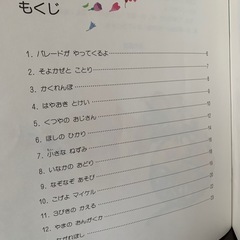 もくじ
1. パレードが やってくるよ
2. そよかぜと ことり 7
3. かくれんぼ
4. はやおき とけい
5. くつやの おじさん
6. ほしの ひかり
7. 小さな ねずみ
8. いなかの おどり
9. なぞなぞ あそび
10. こげよ マイケル
11. 3びきの かえる
12. やまの おんがくか